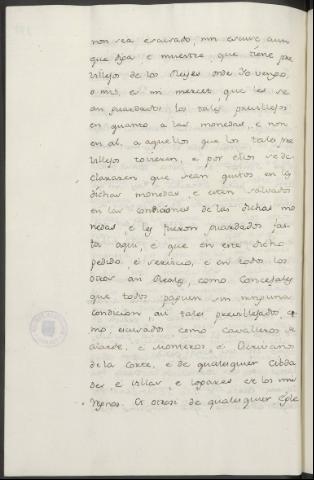 non sea escusado, nin escuse aun
que diga e muestre, que tiene pre
villejos de los Reyes onde Yo vengo,
o mio, ca mi merced, que les se
an guardados los tales previllejos
en quanto a las monedas, e non
en al, a aquellos que los tales pre
villejos tovieren, e por ellos se de
clararen que sean quitos en las
dichas monedas e estan salvados
en las condiciones de las dichas mo
nedas e les fueron guardados fas
ta aqui, e que en este dicho
pedido, e servicio, e en todos los
otros asi Reales, como Concejales
que todos paguen sin ninguna
condicion, asi tales previllejados, co
mo, escusados como cavalleros de
alarde, e Monteros, e Escrivanos
de la Corte, e de qualesquier Cibda
des e Villas, e logares de los mis
Regnos. Et otrosi de qualesquier Egle